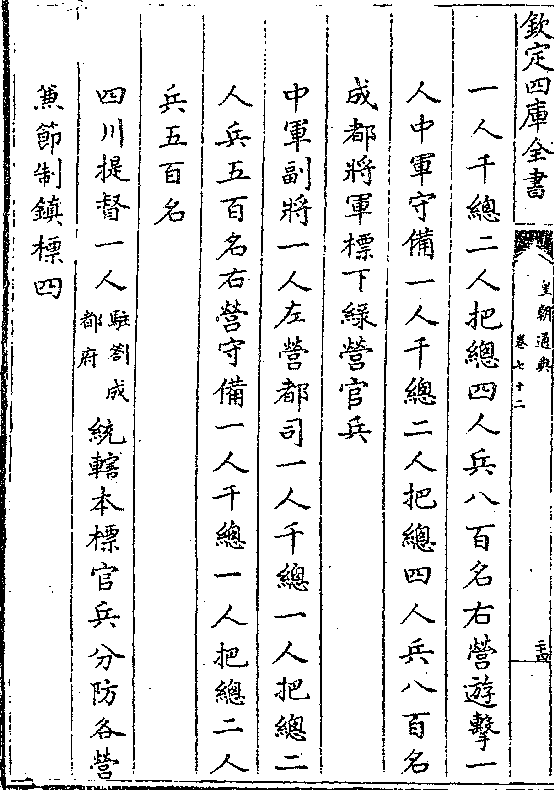 欽定四庫全書
皇朝通典
卷七十二
一人千總二人把總四人兵八百名右營遊擊一
人中軍守備一人千總二人把總四人兵八百名
成都將軍標下綠營官兵
中軍副將一人左營都司一人千總一人把總二
人兵五百名右營守備一人千總一人把總二人
兵五百名
四川提督一人駐劄成都府統轄本標官兵分防各營
兼節制鎮標四